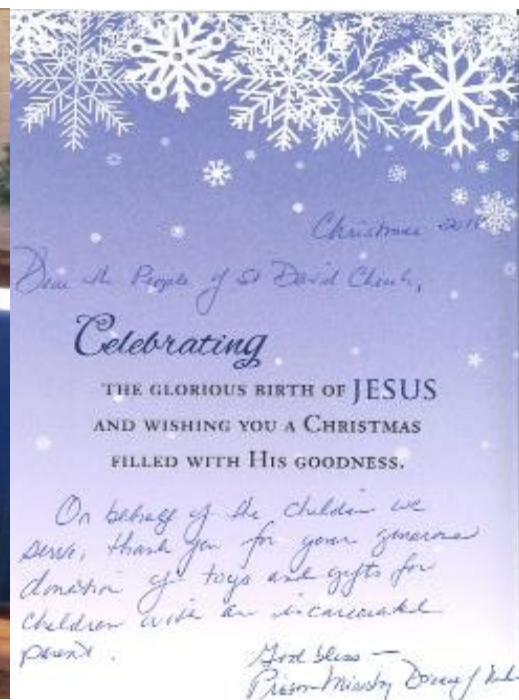 Christmas
Dear the People of St David Church,
Celebrating
THE GLORIOUS BIRTH OF JESUS
AND WISHING YOU A CHRISTMAS
FILLED WITH HIS GOODNESS.
On behalf of the children we
serve, thank you for your generous
donation of toys and gifts for
children with an incarcerated
parent.
God bless —
Prison Ministry